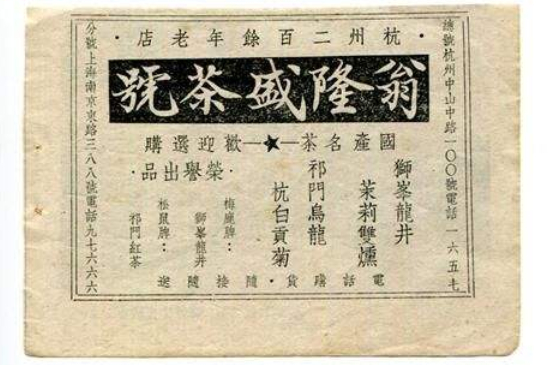 杭州二百餘年老店
翁隆盛茶號
國產名茶—★—歡迎選購
獅峯龍井
茉莉雙燻
祁門烏龍
杭白貢菊
榮譽出品
梅鹿牌：
獅峯龍井
松鼠牌：
祁門紅茶
電話購貨·隨接隨送
總號杭州中山中路一〇〇號電話一六五七
分號上海南京東路三八八號電話九七六六六